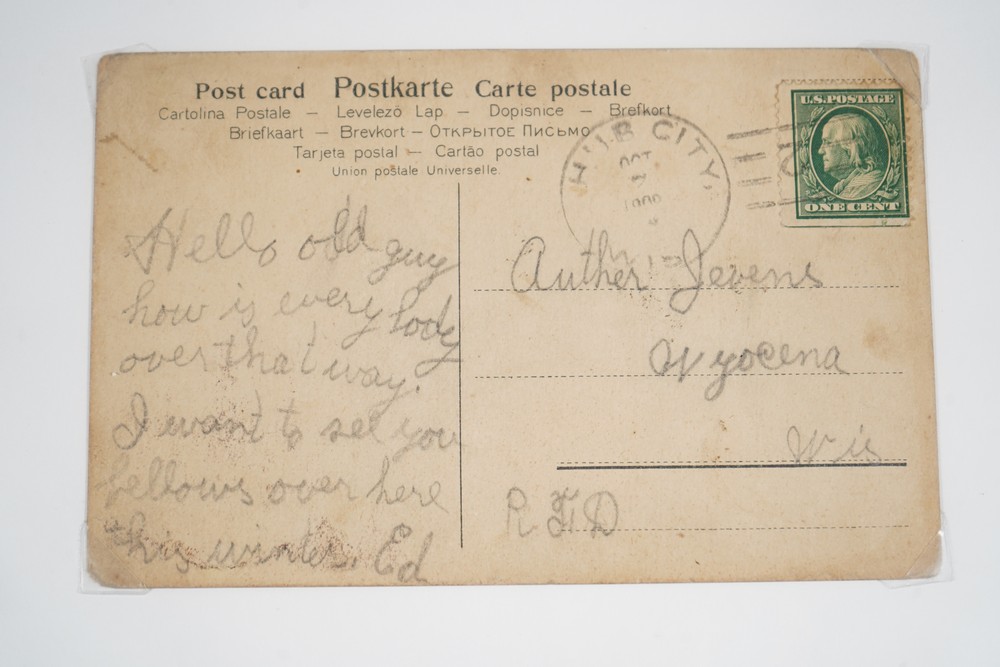 Post card Postkarte Carte postale
Cartolina Postale – Levelező Lap – Dopisnice – Brefkort
Briefkaart – Brevkort – Открытое Письмо
Tarjeta postal – Cartão postal
Union postale Universelle.
HUB CITY,
OCT
1909
U.S. POSTAGE
ONE CENT
Hello old guy
how is every body
over that way.
I want to see you
fellows over here
this winter. Ed
Auther Jevens
Wyocena
Wis
R F D